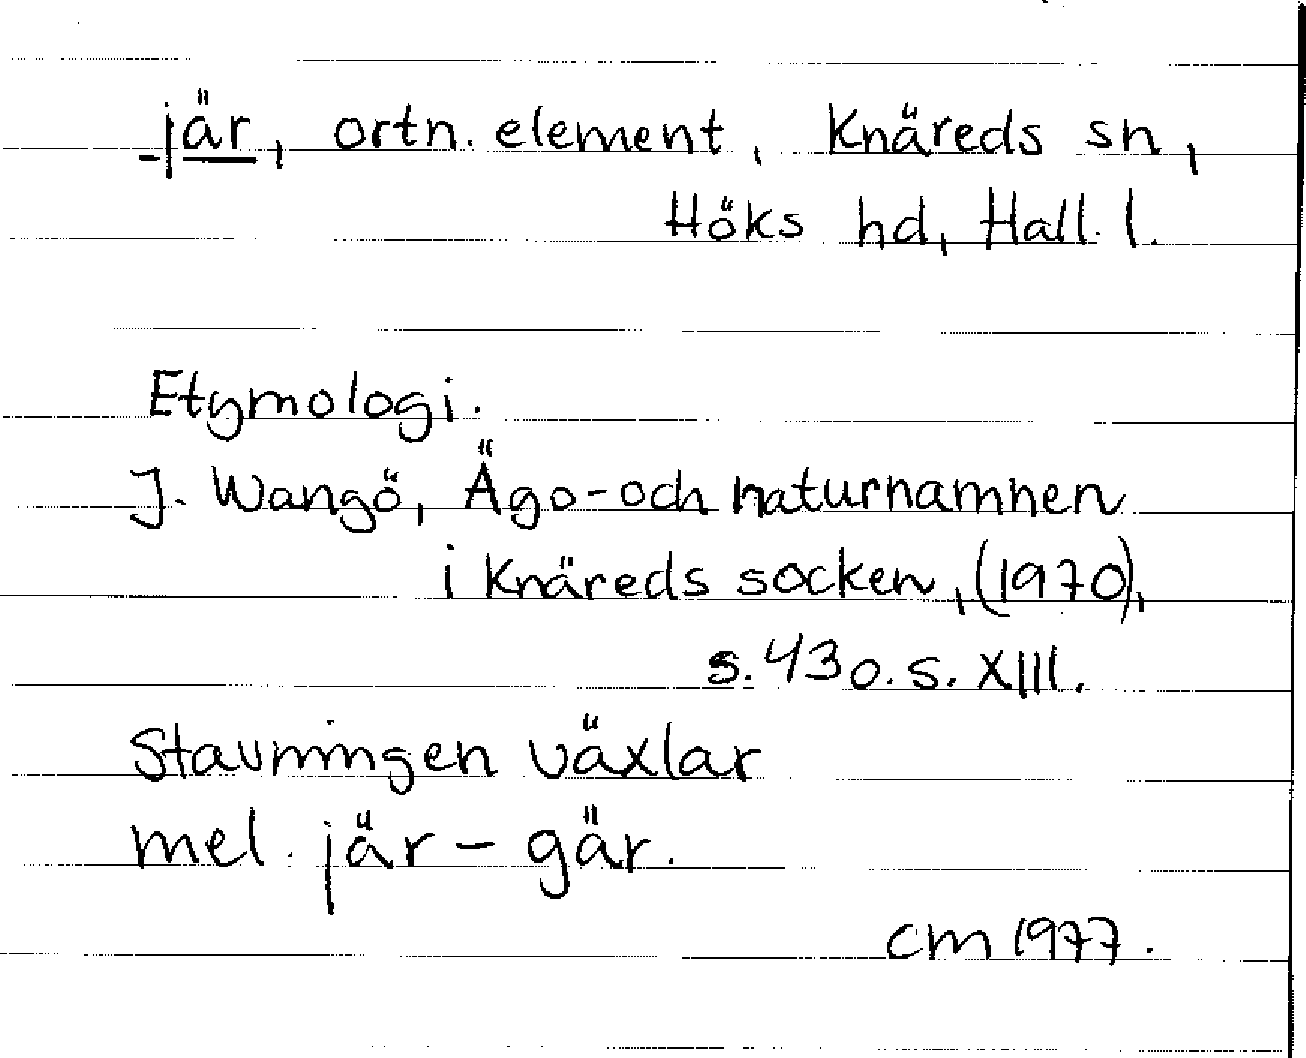 -jär, ortn. element, Knäreds sn,
Höks hd, Hall. l.
Etymologi.
J. Wangö, Ägo- och naturnamnen
i Knäreds socken, (1970),
s. 43 o. s. XIII.
Stavningen växlar
mel. jär - gär.
CM 1977.